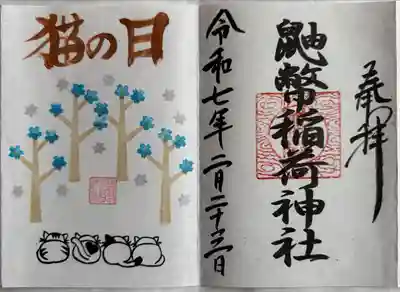 奉拝
鼬幣稲荷神社
令和七年二月二十二日
猫の日